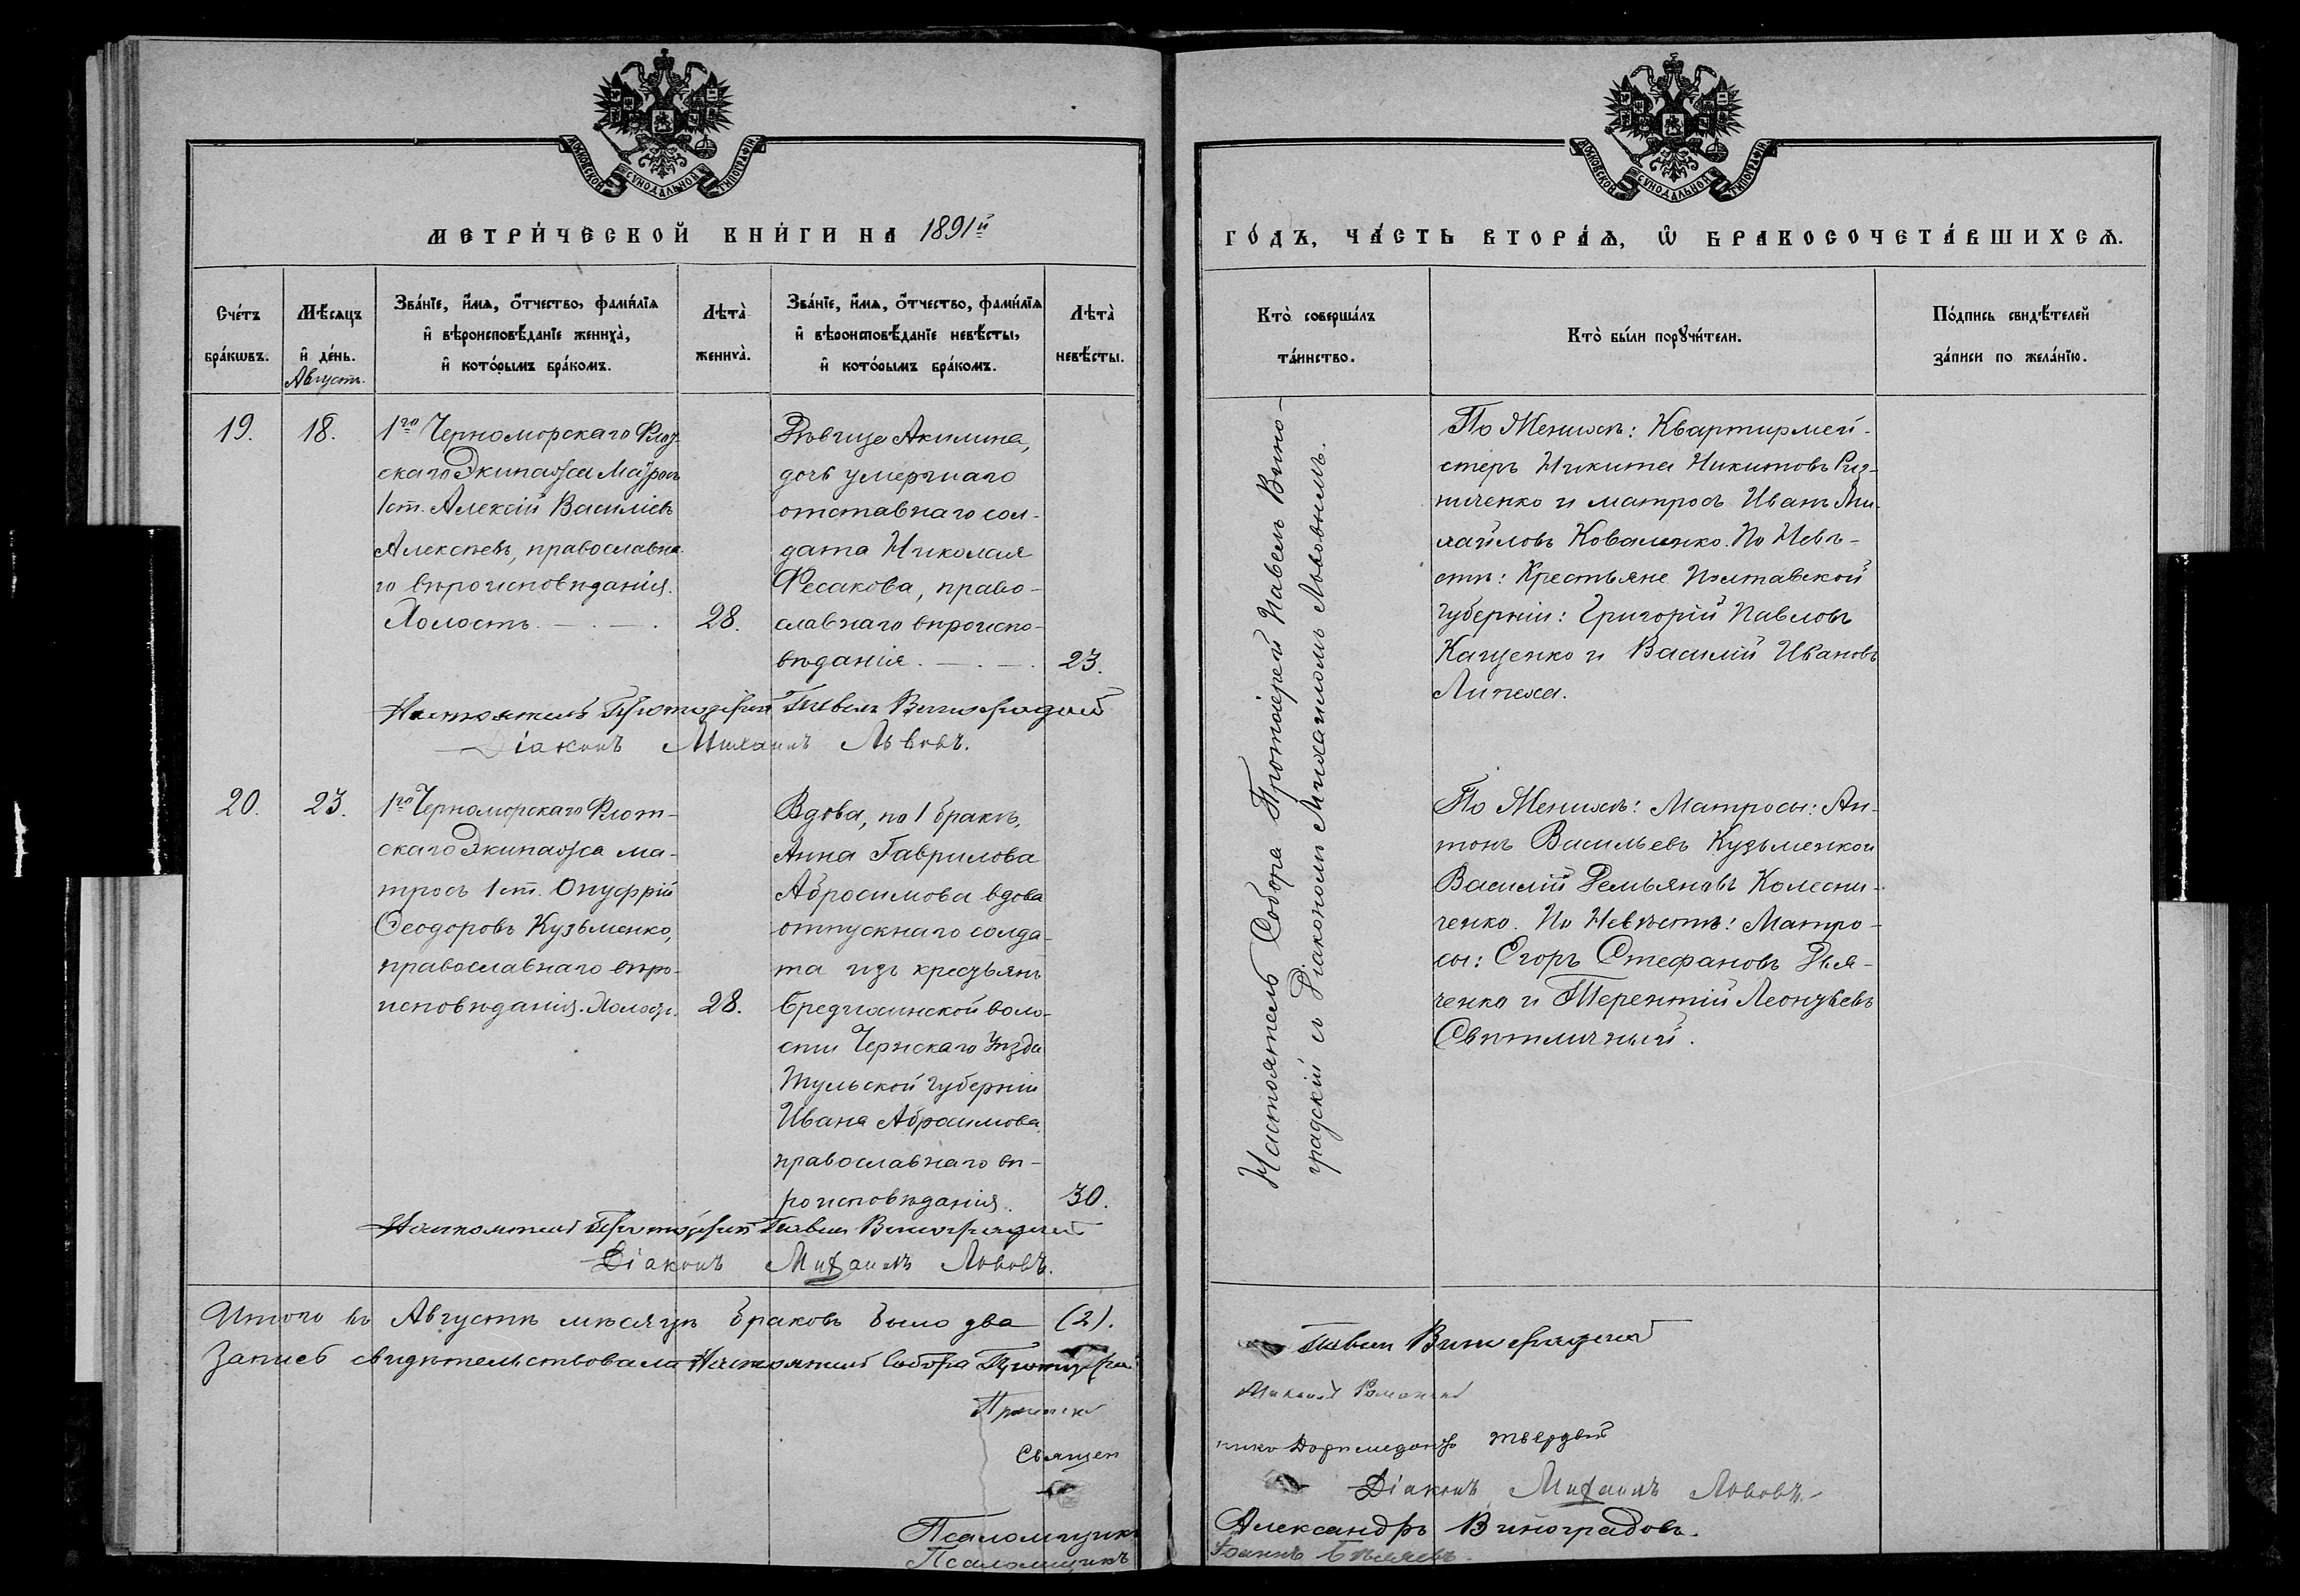 МОСКОВСКОЙ СУНОДАЛЬНОЙ ТИПОГРАФІИ
МЕТРИ́ЧЕСКОЙ КНИ́ГИ НА 1891й
Сче́тъ бра́кѡвъ.
Мѣ́сяцъ и҆ де́нь.
Августъ.
Зва́нїе, и҆́мѧ, ѻ҆́тчество, фами́лїѧ
и҆ вѣроисповѣ́данїе жениха̀,
и҆ кото́рымъ бра́комъ.
Лѣта̀ жениха̀.
Зва́нїе, и҆́мѧ, ѻ҆́тчество, фами́лїѧ
и҆ вѣроисповѣ́данїе невѣ́сты,
и҆ кото́рымъ бра́комъ.
Лѣта̀ невѣ́сты.
19.
18.
1го Черноморскаго Флот
скаго Экипажа Матросъ
1 ст. Алексій Васильевъ
Алексѣевъ, православна
го вѣроисповѣданія.
Холостъ.
28.
Дѣвица Акилина,
дочь умершаго
отставнаго сол-
дата Николая
Фесакова, право-
славнаго вѣроиспо-
вѣданія.
23.
Настоятель Протоіерей Павелъ Виноградскій
Діаконъ Михаилъ Львовъ.
20.
23.
1го Черноморскаго Флот-
скаго Экипажа ма-
тросъ 1 ст. Онуфрій
Ѳеодоровъ Кузьменко,
православнаго вѣро-
исповѣданія. Холостъ.
28.
Вдова, по 1 бракѣ,
Анна Гаврилова
Абросимова вдова
отпускнаго солда-
та изъ крестьянъ
Бредихинской воло-
сти Чернскаго Уѣзда
Тульской Губерніи
Ивана Абросимова,
православнаго вѣ-
роисповѣданія.
30.
Настоятель Протоіерей Павелъ Виноградскій
Діаконъ Михаилъ Львовъ.
Итого въ Августѣ мѣсяцѣ браковъ было два (2).
Запись свидѣтельствовали Настоятель Собора Протоіерей
Священ
Псаломщикъ
Псаломщикъ
МОСКОВСКОЙ СУНОДАЛЬНОЙ ТИПОГРАФІИ
ГО́ДЪ, ЧА́СТЬ ВТОРА́Ѧ, Ѽ БРАКОСОЧЕТА́ВШИХСѦ.
Кто̀ соверша́лъ
та́инство.
Кто̀ бы́ли порꙋчи́тели.
По́дпись свидѣ́телей
за́писи по жела́нїю.
Настоятель Собора Протоіерей Павелъ Вино-
градскій съ Діакономъ Михаиломъ Львовымъ.
По Женихѣ: Квартирмей-
стеръ Никита Никитовъ Риз-
ниченко и матросъ Иванъ Ми-
хайловъ Коваленко. По Невѣ-
стѣ: Крестьяне Полтавской
Губерніи: Григорій Павловъ
Кащенко и Василій Ивановъ
Липеха.
По Женихѣ: Матросы: Ан-
тонъ Васильевъ Кузьменко и
Василій Демьяновъ Колесни-
ченко. По Невѣстѣ: Матро-
сы: Егоръ Стефановъ Дья-
ченко и Терентій Леонтьевъ
Свѣтличный.
Павелъ Виноградскій
Діаконъ Михаилъ Львовъ.
Александръ Виноградовъ.
Іоаннъ Бѣляевъ.